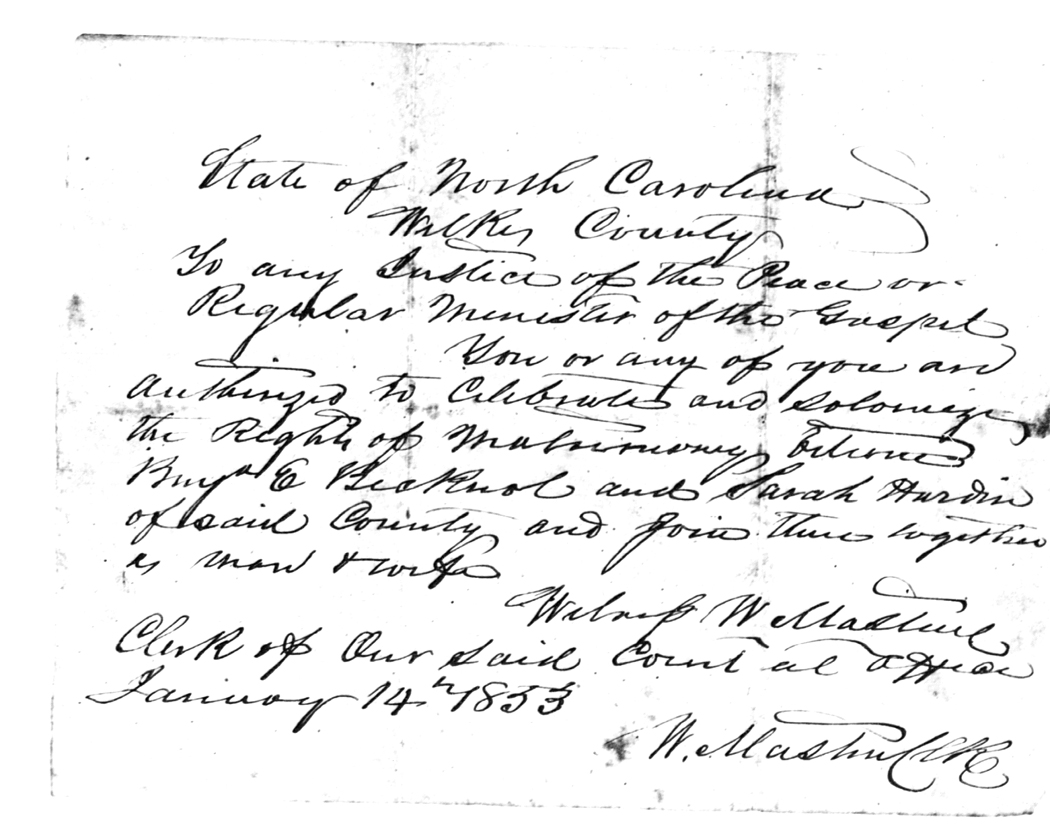 State of North Carolina
Wilkes County
To any Justice of the Peace or
Regular Minester of the Gospel
You or any of you are
authorized to Celebrate and Solomize
the Rights of Matrimony Between
Benjn E Becknol and Sarah Hardin
of said County and Join them together
as man & wife
Witness W Mastin
Clerk of Our said Court at office
January 14th 1853
W. Mastin Clk